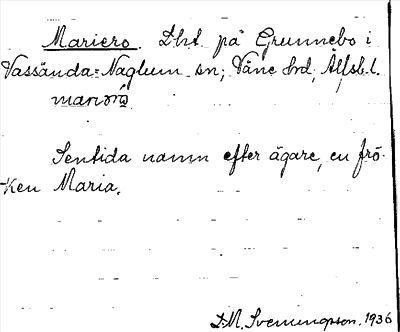 Mariero. Lht på Grunnebo i
Vassända=Naglum sn; Väne hrd, Älfsb.l.
Sentida namn efter ägare, en frö-
ken Maria.
D.M. Svenningsson. 1936